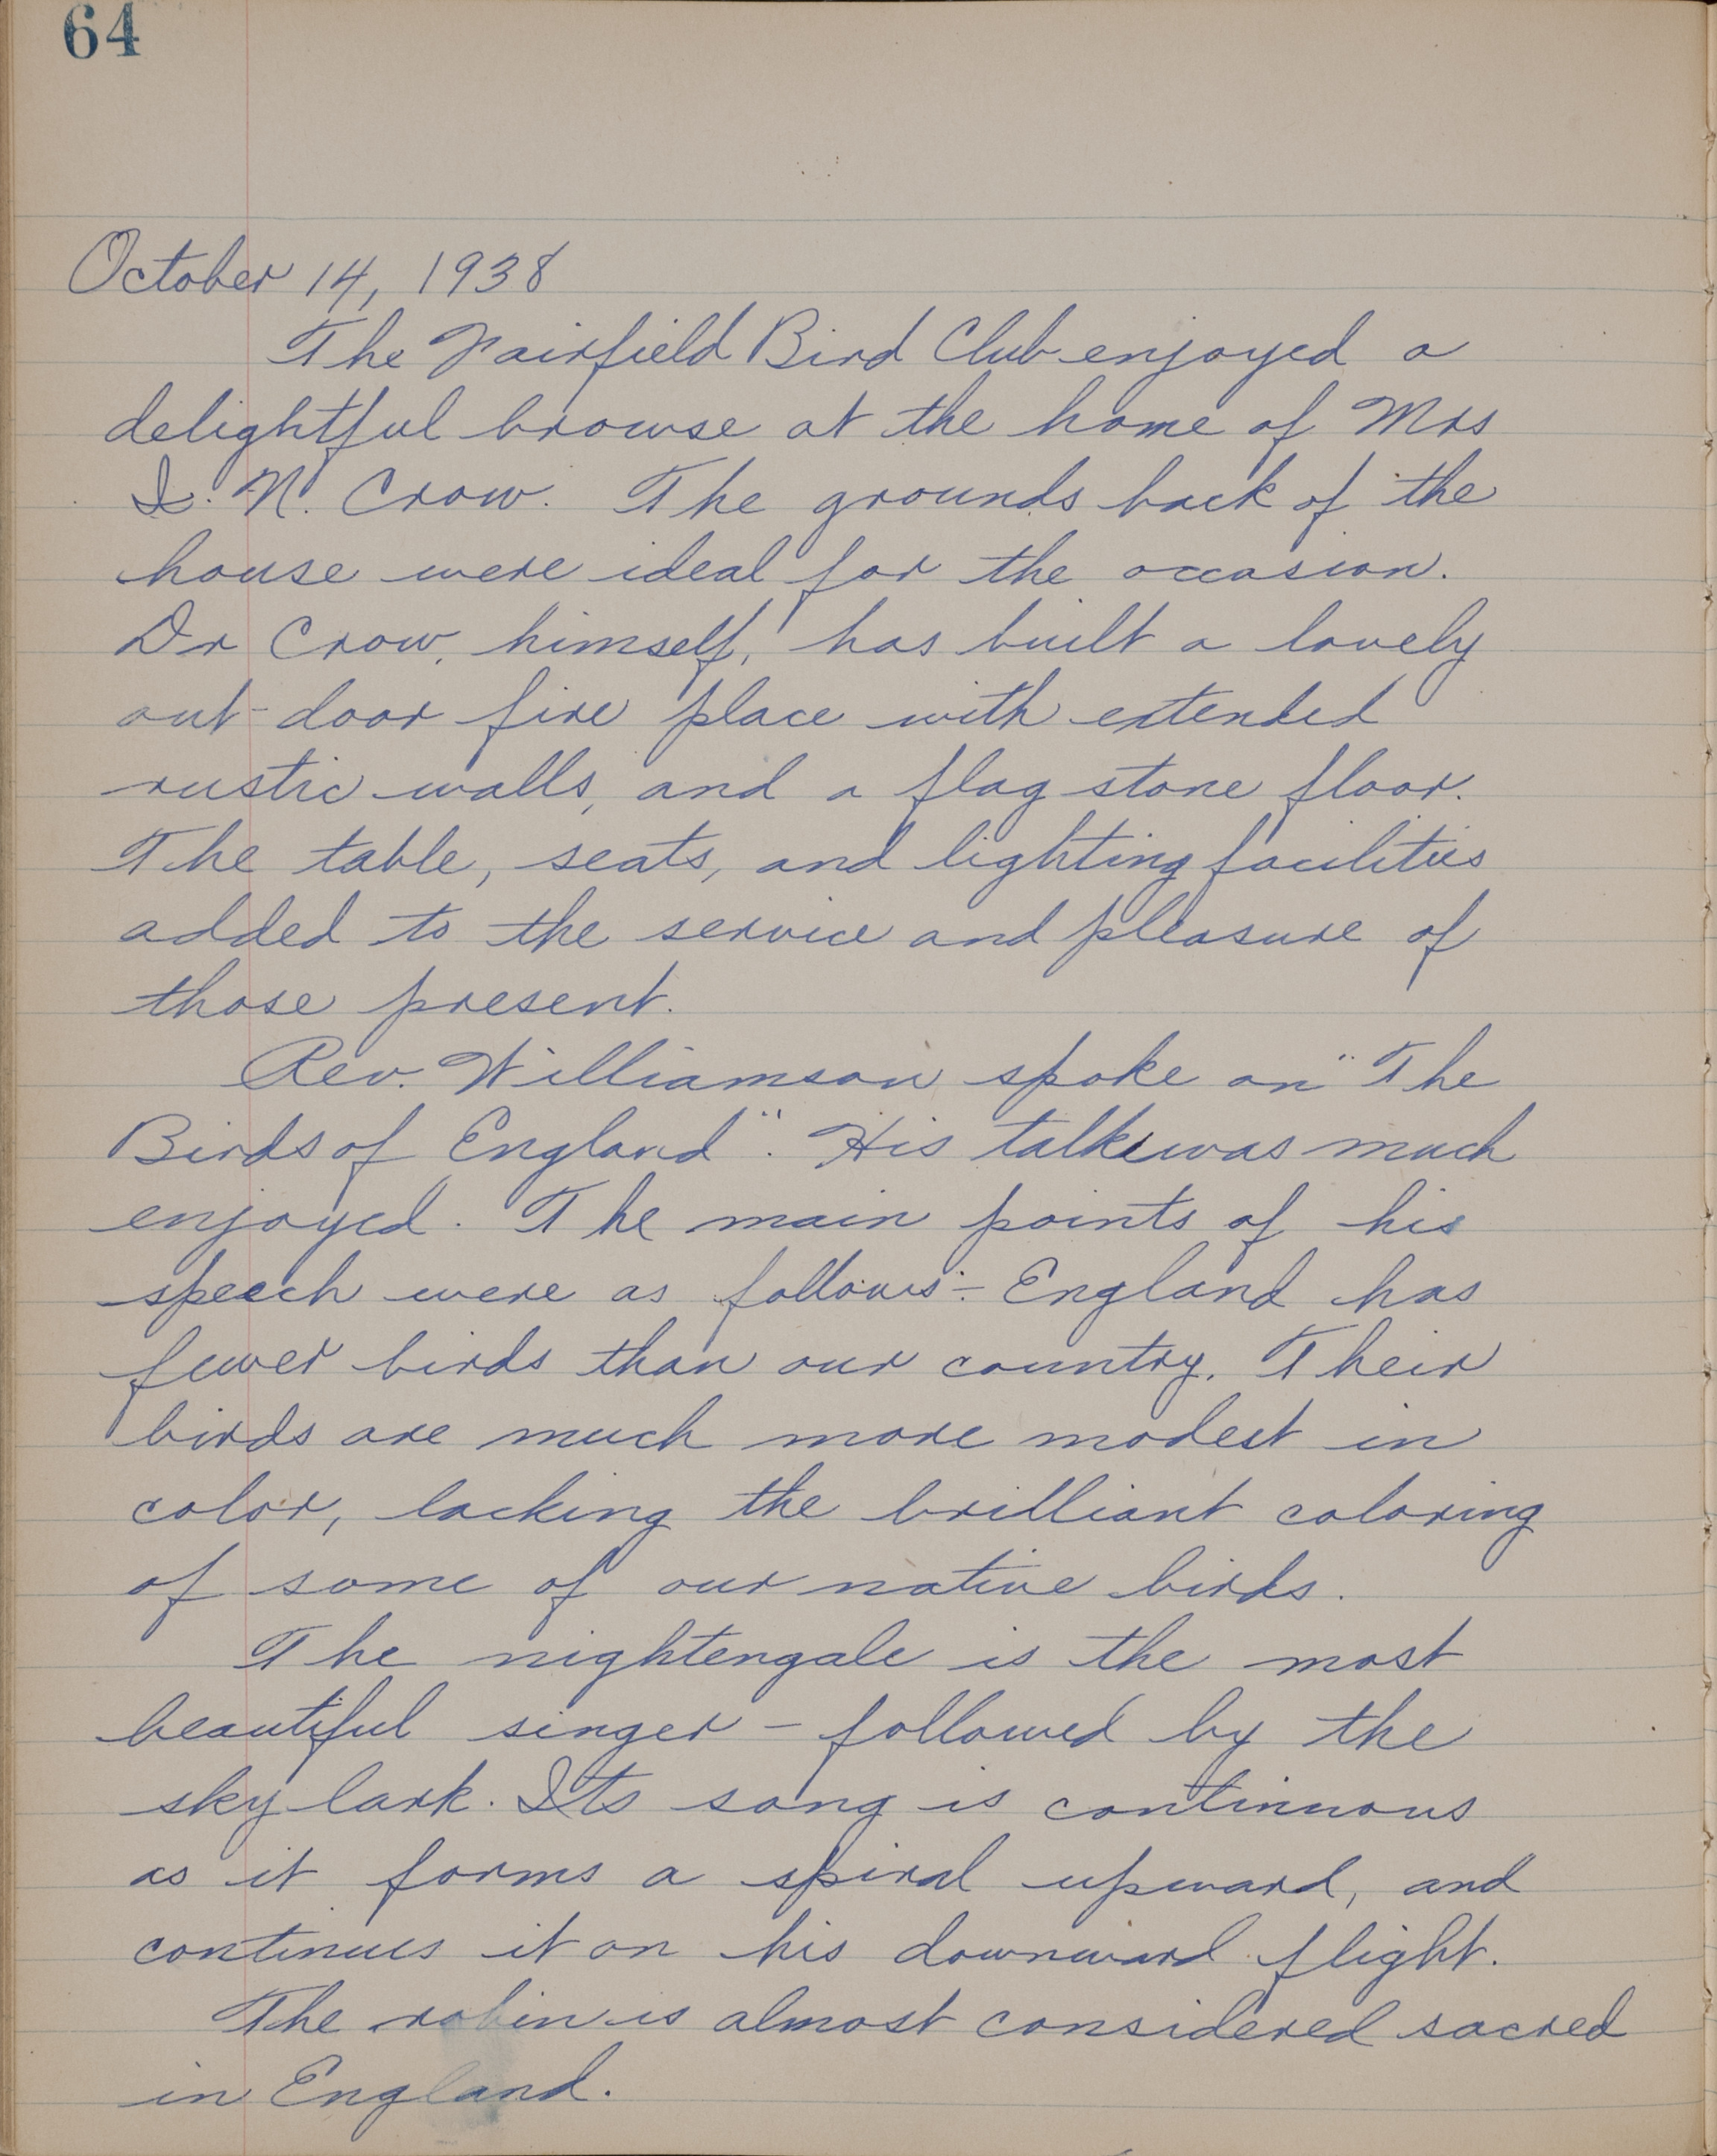 64
October 14, 1938
The Fairfield Bird Club enjoyed a
delightful browse at the home of Mrs
I. N. Crow. The grounds back of the
house were ideal for the occasion.
Dr Crow, himself, has built a lovely
out-door fire place with extended
rustic walls, and a flag stone floor.
The table, seats, and lighting facilities
added to the service and pleasure of
those present.
Rev. Williamson spoke on "The
Birds of England". His talk was much
enjoyed. The main points of his
speech were as follows:- England has
fewer birds than our country. Their
birds are much more modest in
color, lacking the brilliant coloring
of some of our native birds.
The nightengale is the most
beautiful singer - followed by the
sky lark. Its song is continuous
as it forms a spiral upward, and
continues it on his downward flight.
The robin is almost considered sacred
in England.